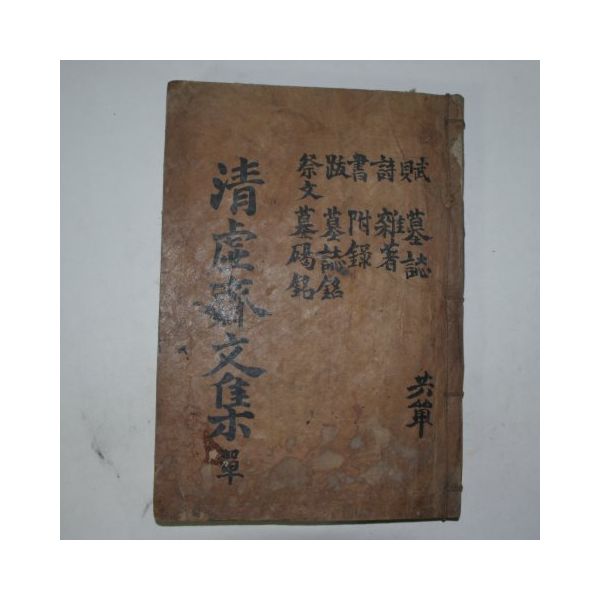 賦 墓誌
詩 雜著
書 附錄
跋 墓誌銘
祭文 墓碣銘
共單
清虛齋文集 單